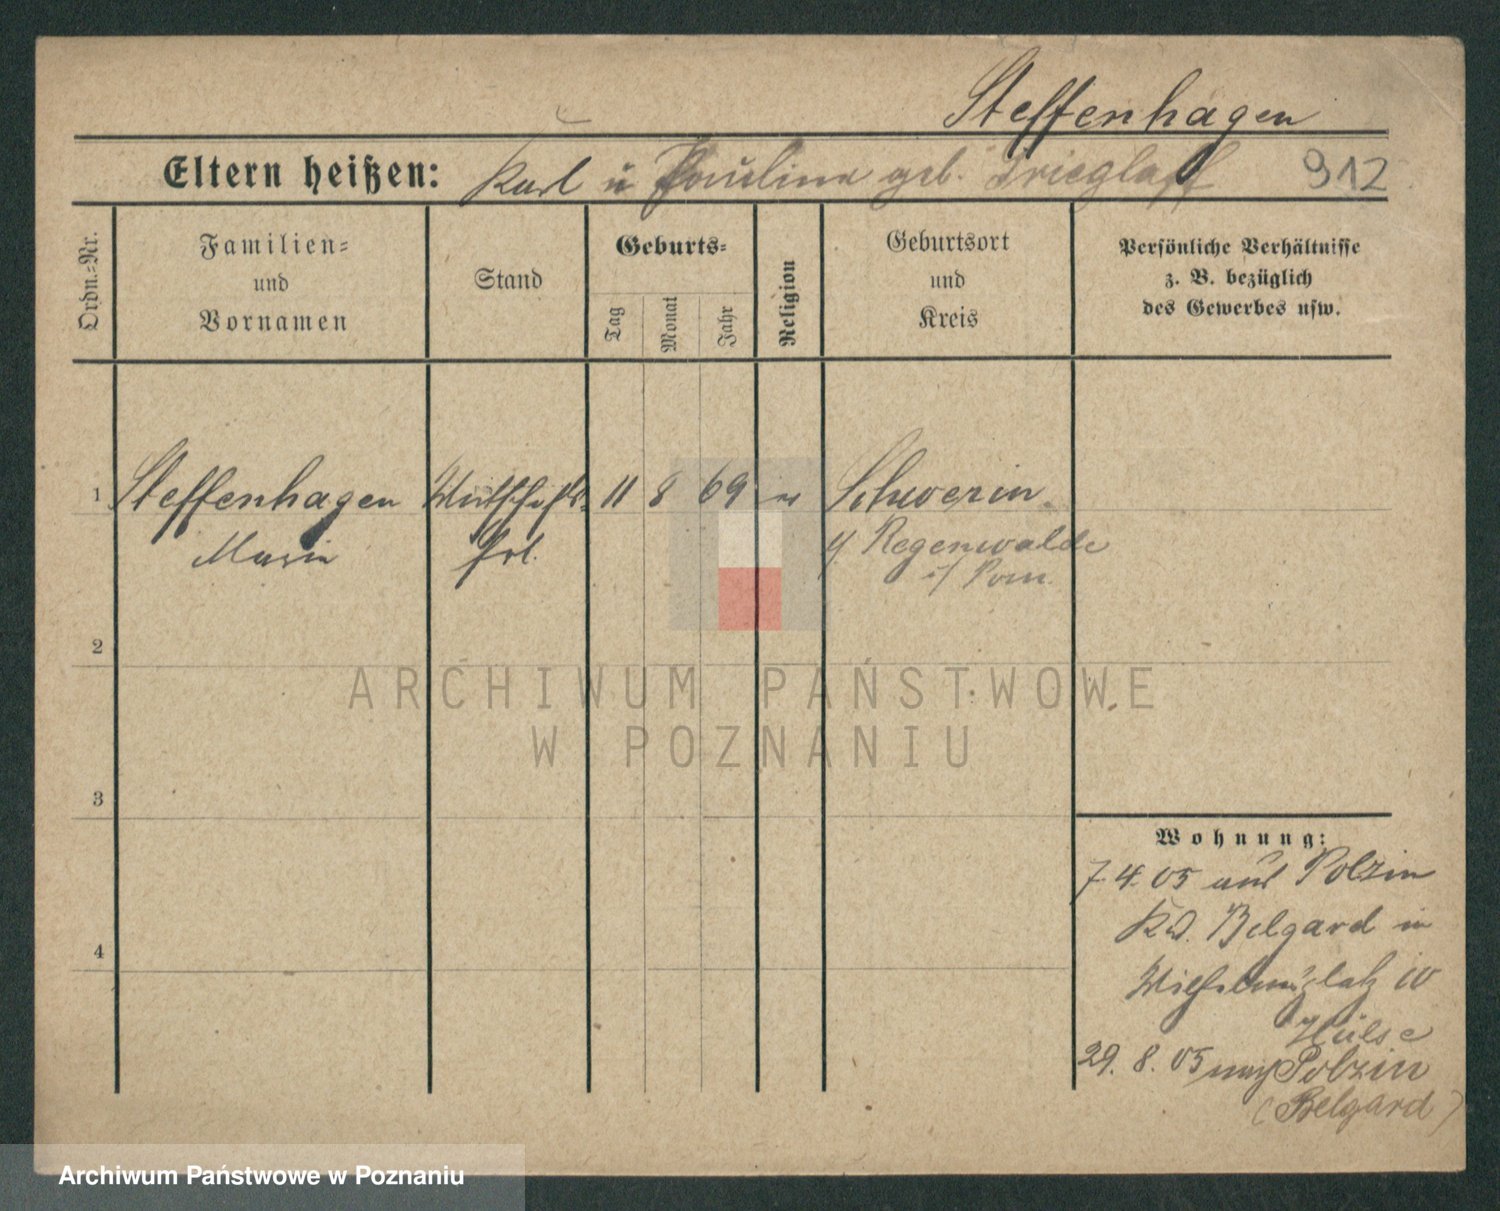 Steffenhagen
Eltern heißen: Karl u Pauline geb. Trieglaff 912
Ordn.=Nr.
Familien=
und
Vornamen
Stand
Geburts=
Tag
Monat
Jahr
Religion
Geburtsort
und
Kreis
Persönliche Verhältnisse
z. B. bezüglich
des Gewerbes usw.
1 Steffenhagen Wirtschafts- 11 8 69 ev Schwerin
Marie Frl. Regenwalde
i/ Pom
2
3
4
ARCHIWUM PAŃSTWOWE
W POZNANIU
Wohnung:
7. 4. 05 aus Polzin
Krs. Belgard in
Wilhelmsplatz 10
Hülse
29. 8. 05 nach Polzin
(Belgard)
Archiwum Państwowe w Poznaniu